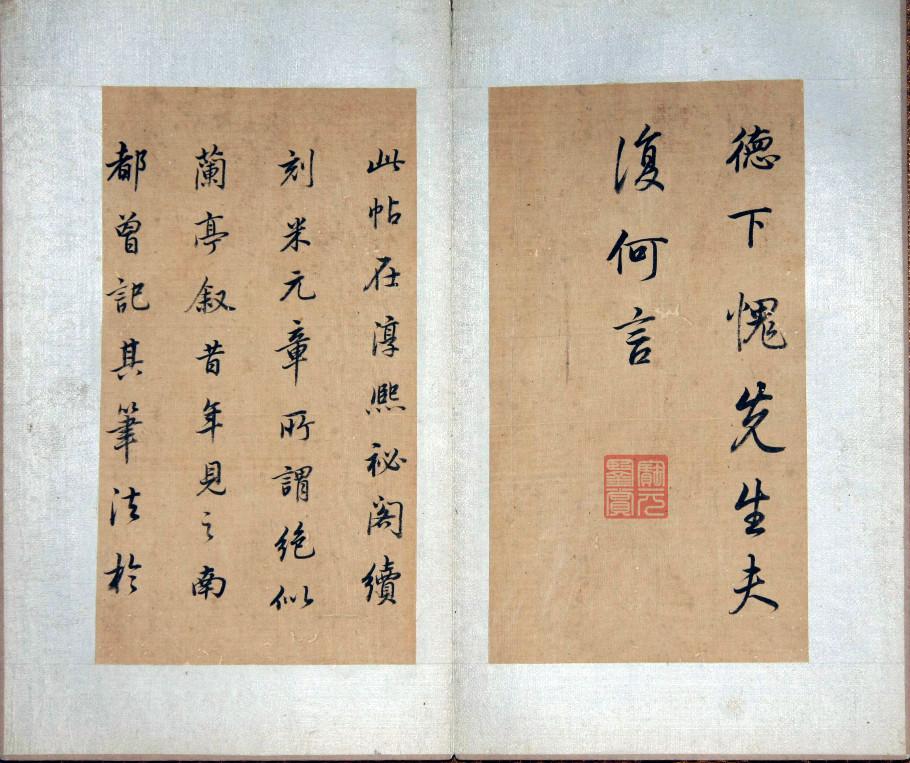 德下愧先生夫
復何言
此帖在淳熙祕閣續
刻米元章所謂絶似
蘭亭敘昔年見之南
都曾記其筆法於